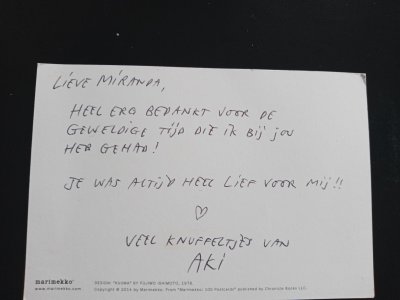 LIEVE MIRANDA,
HEEL ERG BEDANKT VOOR DE
GEWELDIGE TIJD DIE IK BIJ JOU
HEB GEHAD!
JE WAS ALTIJD HEEL LIEF VOOR MIJ!!
♡
VEEL KNUFFELTJES VAN
AKI
marimekko® DESIGN: "KUUMA" BY FUJIWO ISHIMOTO, 1978.
www.marimekko.com Copyright © 2014 by Marimekko. From "Marimekko: 100 Postcards" published by Chronicle Books LLC.